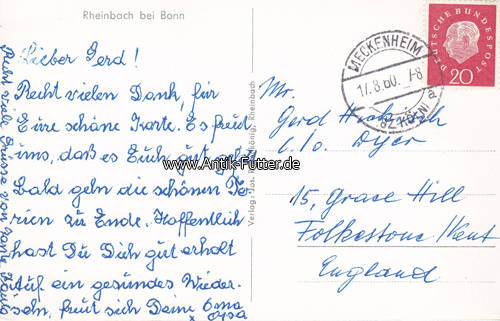 Rheinbach bei Bonn
Lieber Gerd!
Recht vielen Dank, für
Eure schöne Karte. Es freut
uns, daß es Euch gut geht.
Bald gehn die schönen Fe-
rien zu Ende. Hoffentlich
hast Du Dich gut erholt
Auf ein gesundes Wieder-
sehn, freut sich Deine Oma
Recht viele Grüsse von Tante
Verlag: Jos. Rheinbach
www.Antik-Futter.de
MECKENHEIM
17.8.60.
(BZ KÖLN)
a
DEUTSCHE BUNDESPOST
20
Mr.
Gerd
c/o. Dyer
15, Grace Hill
Folkestone/Kent
England